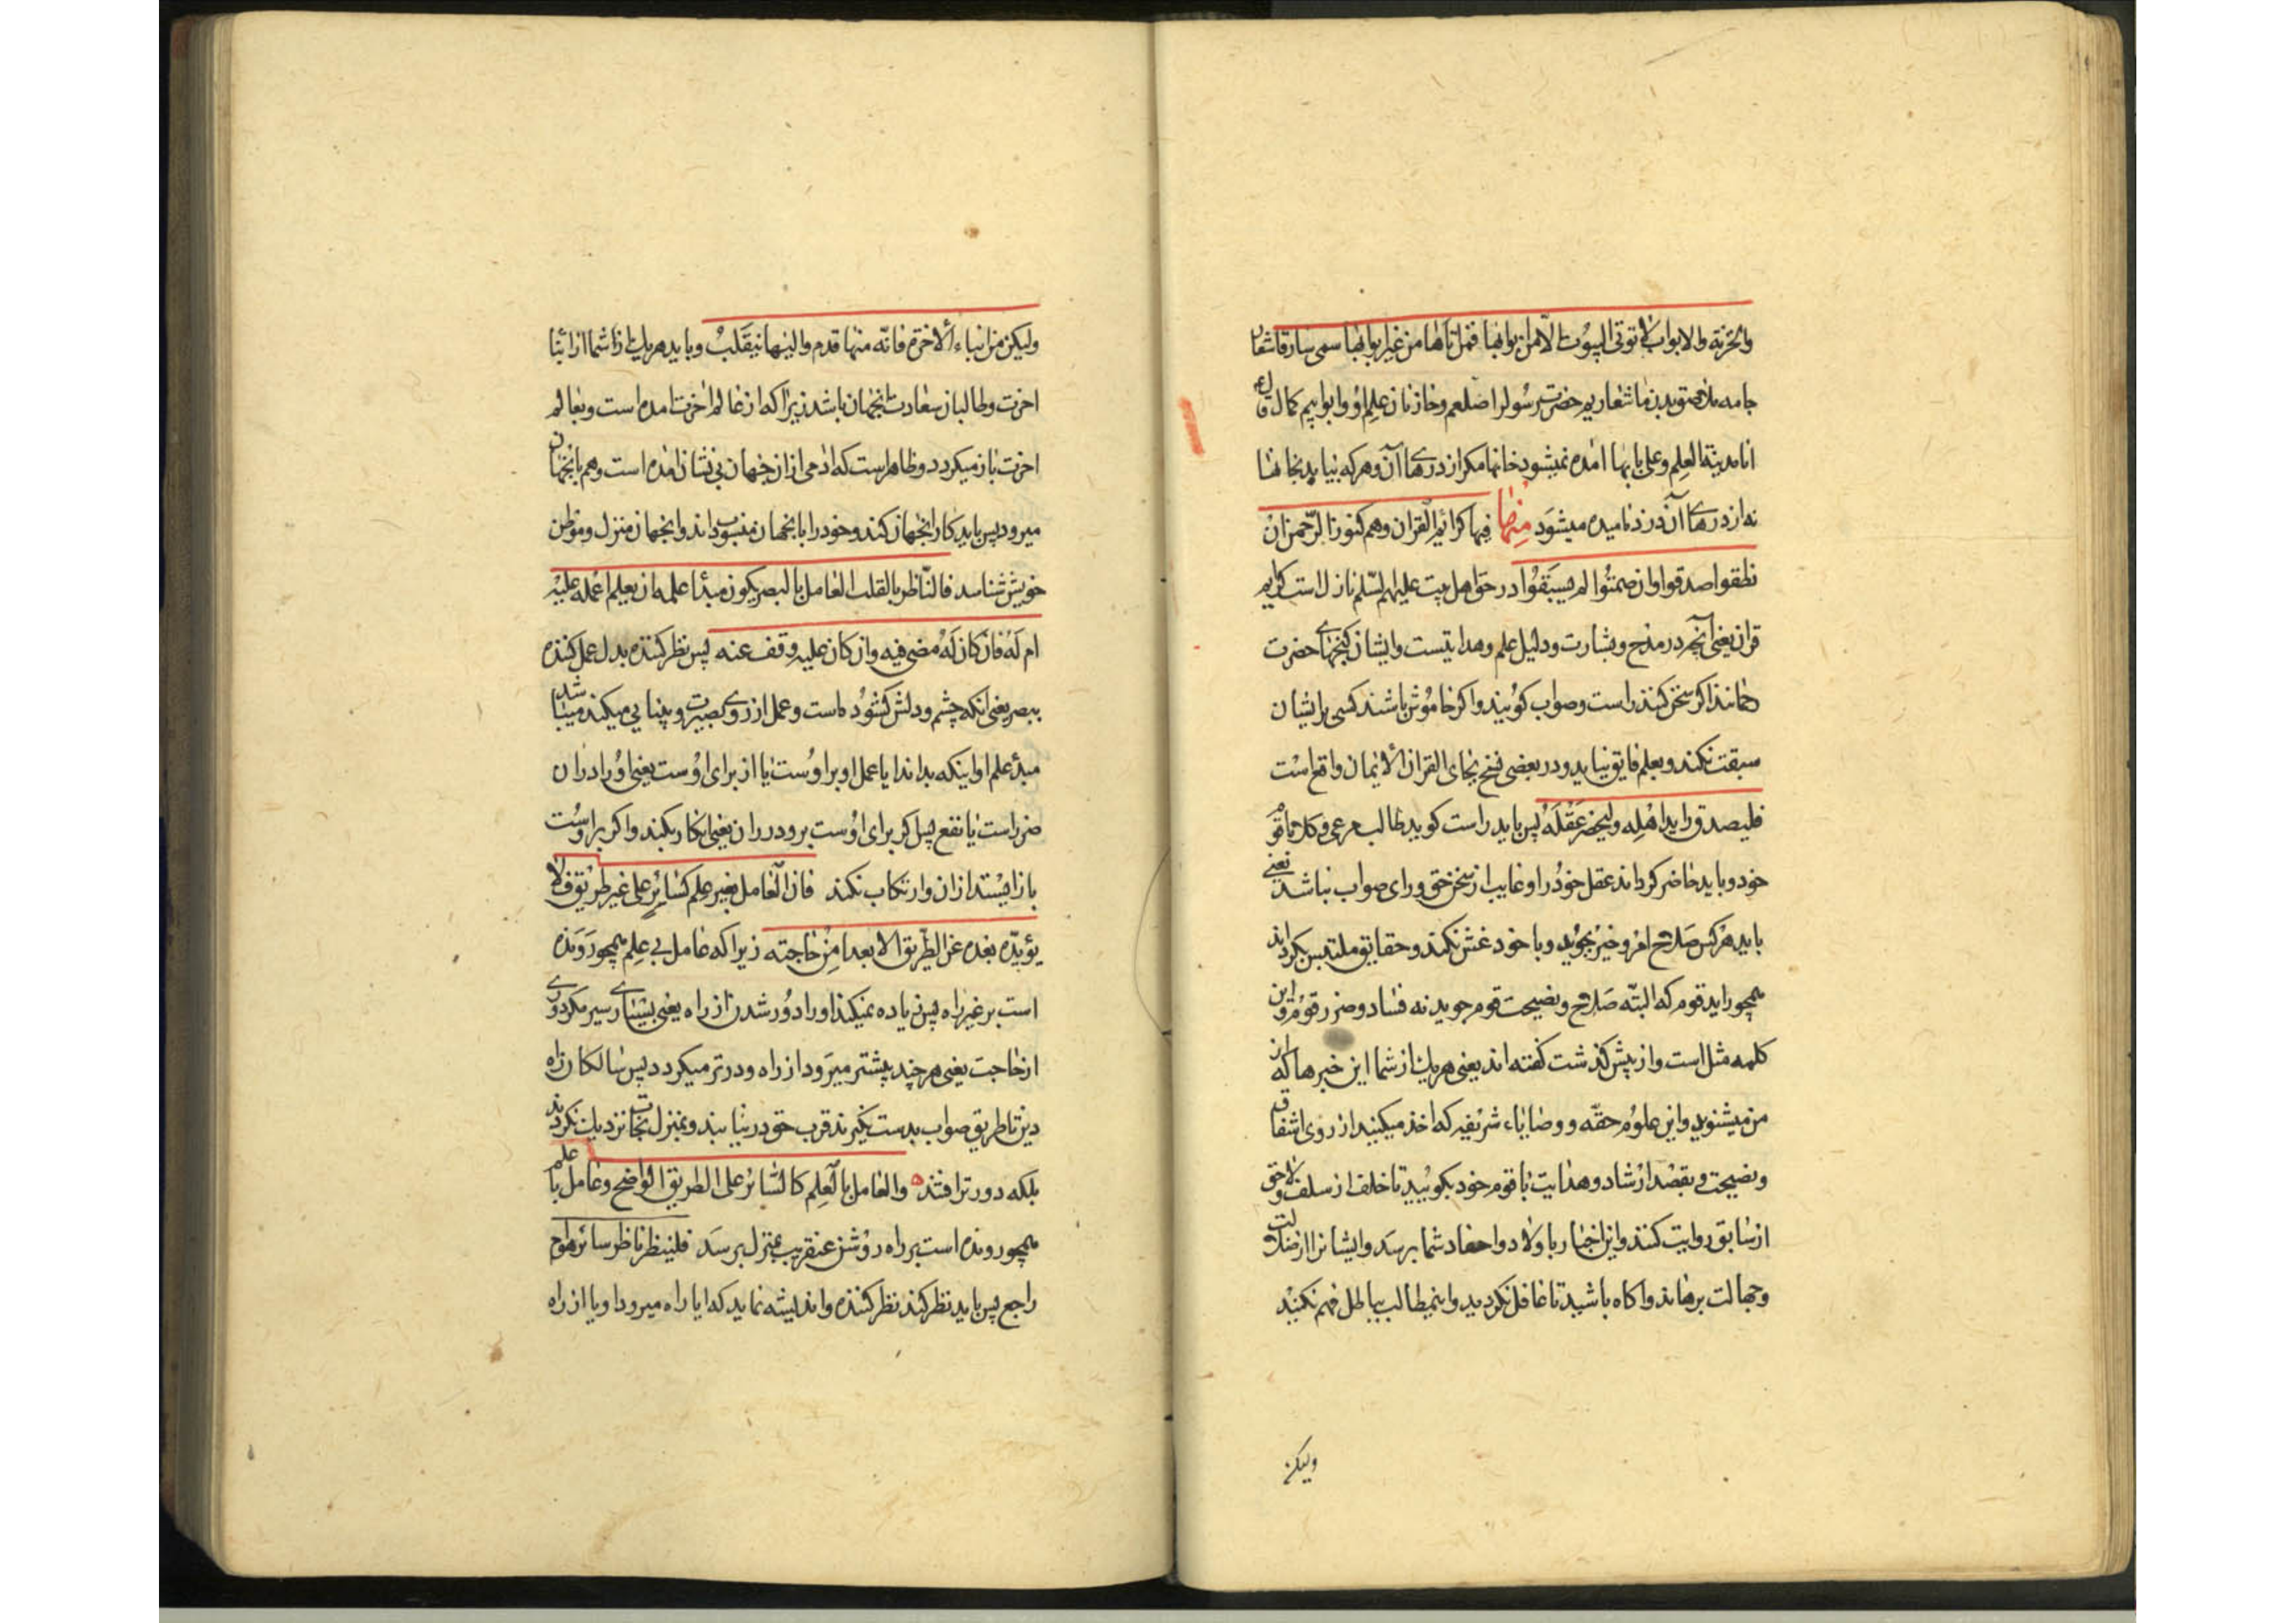 والخزنة والابواب لا توتی البیوت الّا من ابوابها فمن اتاها من غیر ابوابها سمی سارقا شعار
جامه ملاصق بدن ما شعاریم حضرت رسولرا صلعم وخازنان علم او وابوابیم کمال قال ع
انا مدینة العلم وعلی بابها امده نمیشود خانها مکر از درهای آن وهرکه نیاید بخانها
نه از درهای آن دزد نامیده میشود منها فیهم کرائم القران وهم کنوز الرّحمن ان
نطقوا صدقوا وان صمتوا لم یسبقوا در حق اهل بیت علیهم السّلم نازل است کرایم
قران یعنی آنچه در مدح وبشارت ودلیل علم وهدایتست وایشان کنجهای حضرت
رحمانند اکر سخن کنند راست وصواب کویند واکر خاموش باشند کسی بر ایشان
سبقت نکند وبعلم فایق نیاید ودر بعضی نسخ بجای القران الایمان واقع است
فلیصدق راید اهله ولیحضر عقله پس باید راست کوید طالب مرعی وکلا با قوم
خود وباید حاضر کرداند عقل خود را وغایب از سخن حق ورای صواب نباشد یعنی
باید هرکس صلاح امر وخیر بجوید وبا خود غش نکند وحقایق ملتبس نکرداند
همچو راید قوم که البتّه صلاح ونصیحت قوم جوید نه فساد وضرر قوم واین
کلمه مثل است واز پیش کذشت کفته اند یعنی هریک از شما این خبرها که از
من میشنوید واین علوم حقّه ووصایاء شریفه که اخذ میکنید از روی اشفاق
ونصیحت وبقصد ارشاد وهدایت با قوم خود بکویید تا خلف از سلف ولاحق
از سابق روایت کنند واین اخبار باولاد واحفاد شما برسد وایشانرا از ضلالت
وجهالت برهاند واکاه باشید تا غافل نکردید واینمطالب بباطل فهم نکنید
ولیکن
ولیکن من ابناء الاخرة فانّه منها قدم والیها ینقلب وباید هریک از شما از ابنا
اخرت وطالبان سعادت انجهان باشد زیراکه از عالم اخرت امده است وبعالم
اخرت باز میکردد وظاهر است که ادمی از ان جهان بی نشان امده است وهم بانجهان
میرود پس باید کار انجهان کند وخود را بانجهان منسوب داند وانجهان منزل وموطن
خویش شناسد فالنّاظر بالقلب العامل بالبصر یکون مبدأ علمه ان یعلم اعمله علیه
ام له فان کان له مضی فیه وان کان علیه وقف عنه پس نظر کننده بدل عمل کننده
ببصر یعنی انکه چشم ودلش کشوده است وعمل از روی بصیرت وبینایی میکند میباشد
مبدء علم او اینکه بداند ایا عمل او بر اوست یا از برای اوست یعنی او را در ان
ضرر است یا نفع پس اکر برای اوست برود در ان یعنی انکار بکند واکر بر اوست
باز ایستد از ان وارتکاب نکند فان العامل بغیر علم کسائر علی غیر طریق فلا
یزیده بعده عن الطّریق الا بعدا من حاجته زیراکه عامل بی علم همچو رونده
است بر غیر راه پس زیاده نمیکند او را دور شدن از راه یعنی بسیاری سیر مکر دوری
از حاجت یعنی هرچند پیشتر میرود از راه دورتر میکردد پس سالکان راه
دین تا طریق صواب بدست نکیرند قرب حق در نیابند وبمنزل نجات نزدیک نکردند
بلکه دورتر افتند والعامل بالعلم کالسّائر علی الطریق الواضح وعامل با علم
همچو رونده است بر راه روشن عنقریب بمنزل برسد فلینظر ناظر سائر هو ام
راجع پس باید نظر کند نظر کننده واندیشه نماید که ایا راه میرود او یا از راه